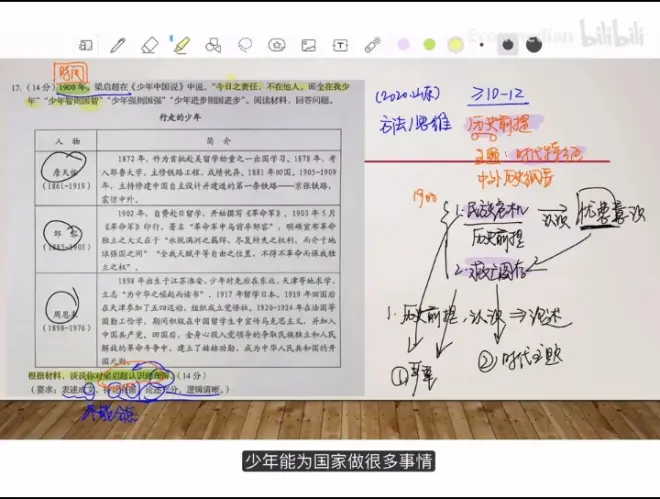 bilibili
时间
17.（14分）1900年，梁启超在《少年中国说》中说，“今日之责任，不在他人，而全在我少
年”“少年智则国智”“少年强则国强”“少年进步则国进步”。阅读材料，回答问题。
行走的少年
人 物
简 介
詹天佑
（1861-1919）
1872年，作为首批赴美留学幼童之一出国学习。1878年，考
入耶鲁大学，主修铁路工程，成绩优异。1881年回国。1905-1909
年，主持修建中国自主设计并建造的第一条铁路——京张铁路，
震惊中外。
邹 容
（1885-1905）
1902年，自费赴日留学，开始撰写《革命军》。1903年5月
《革命军》印行，署名“革命军中马前卒邹容”，明确宣布革命
独立之大义在于“永脱满洲之羁绊，尽复所失之权利，而介于地
球强国之间”“全我天赋平等自由之位置，不得不革命而保我独
立之权”。
周恩来
（1898-1976）
1898年出生于江苏淮安。少年时先后在东北、天津等地求学，
立志“为中华之崛起而读书”。1917年留学日本。1919年回国后
在天津参加了五四运动，组织成立觉悟社。1920-1924年在法国等
国勤工俭学，期间积极在中国留学生中宣传马克思主义，并加入
中国共产党。回国后，全身心投入党领导的争取民族独立和人民
解放的革命斗争中，建立了赫赫功勋，成为中华人民共和国的开
国元勋。
根据材料，谈谈你对梁启超认识的理解。（14分）
（要求：表述成文，持论有据，论述充分，逻辑清晰。）
(2020.山东)
≥10-12
方法/思维
历史前提
主题：时代特征
中外历史纲要
1900
1.民族危机
认识
忧患意识
历史前提
2.救亡图存
1.历史前提，认识⇒论述
①
②时代主题
少年能为国家做很多事情